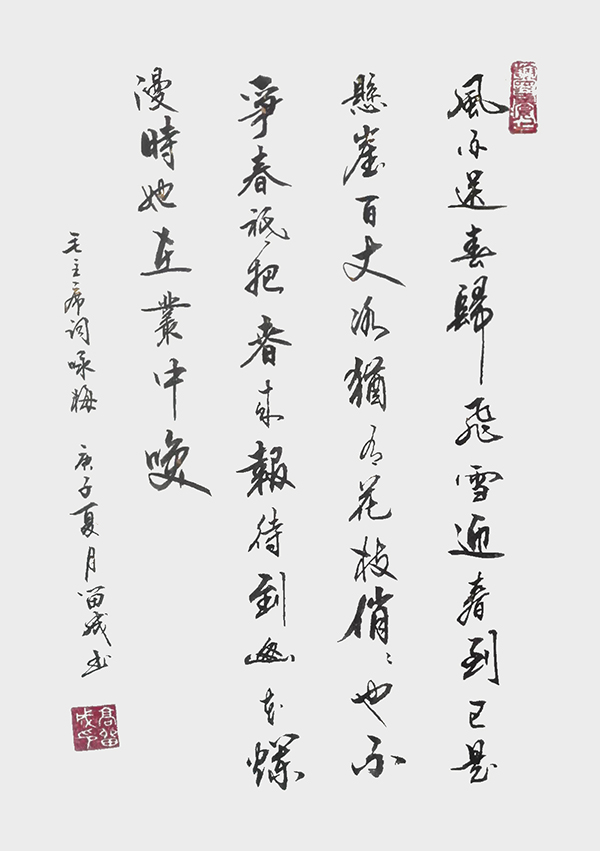 風雨送春歸飛雪迎春到已是
懸崖百丈冰猶有花枝俏〻也不
爭春祇把春來報待到山花爛
漫時她在叢中咲
毛主席詞咏梅 庚子夏月留成書
高留成印